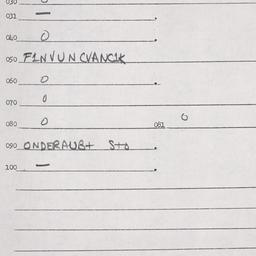 030 0
031 —
040 0
050 FINVUNCVANCIK
060 0
070 0
080 0 081 0
090 ONDERAUB+ STO
100 —